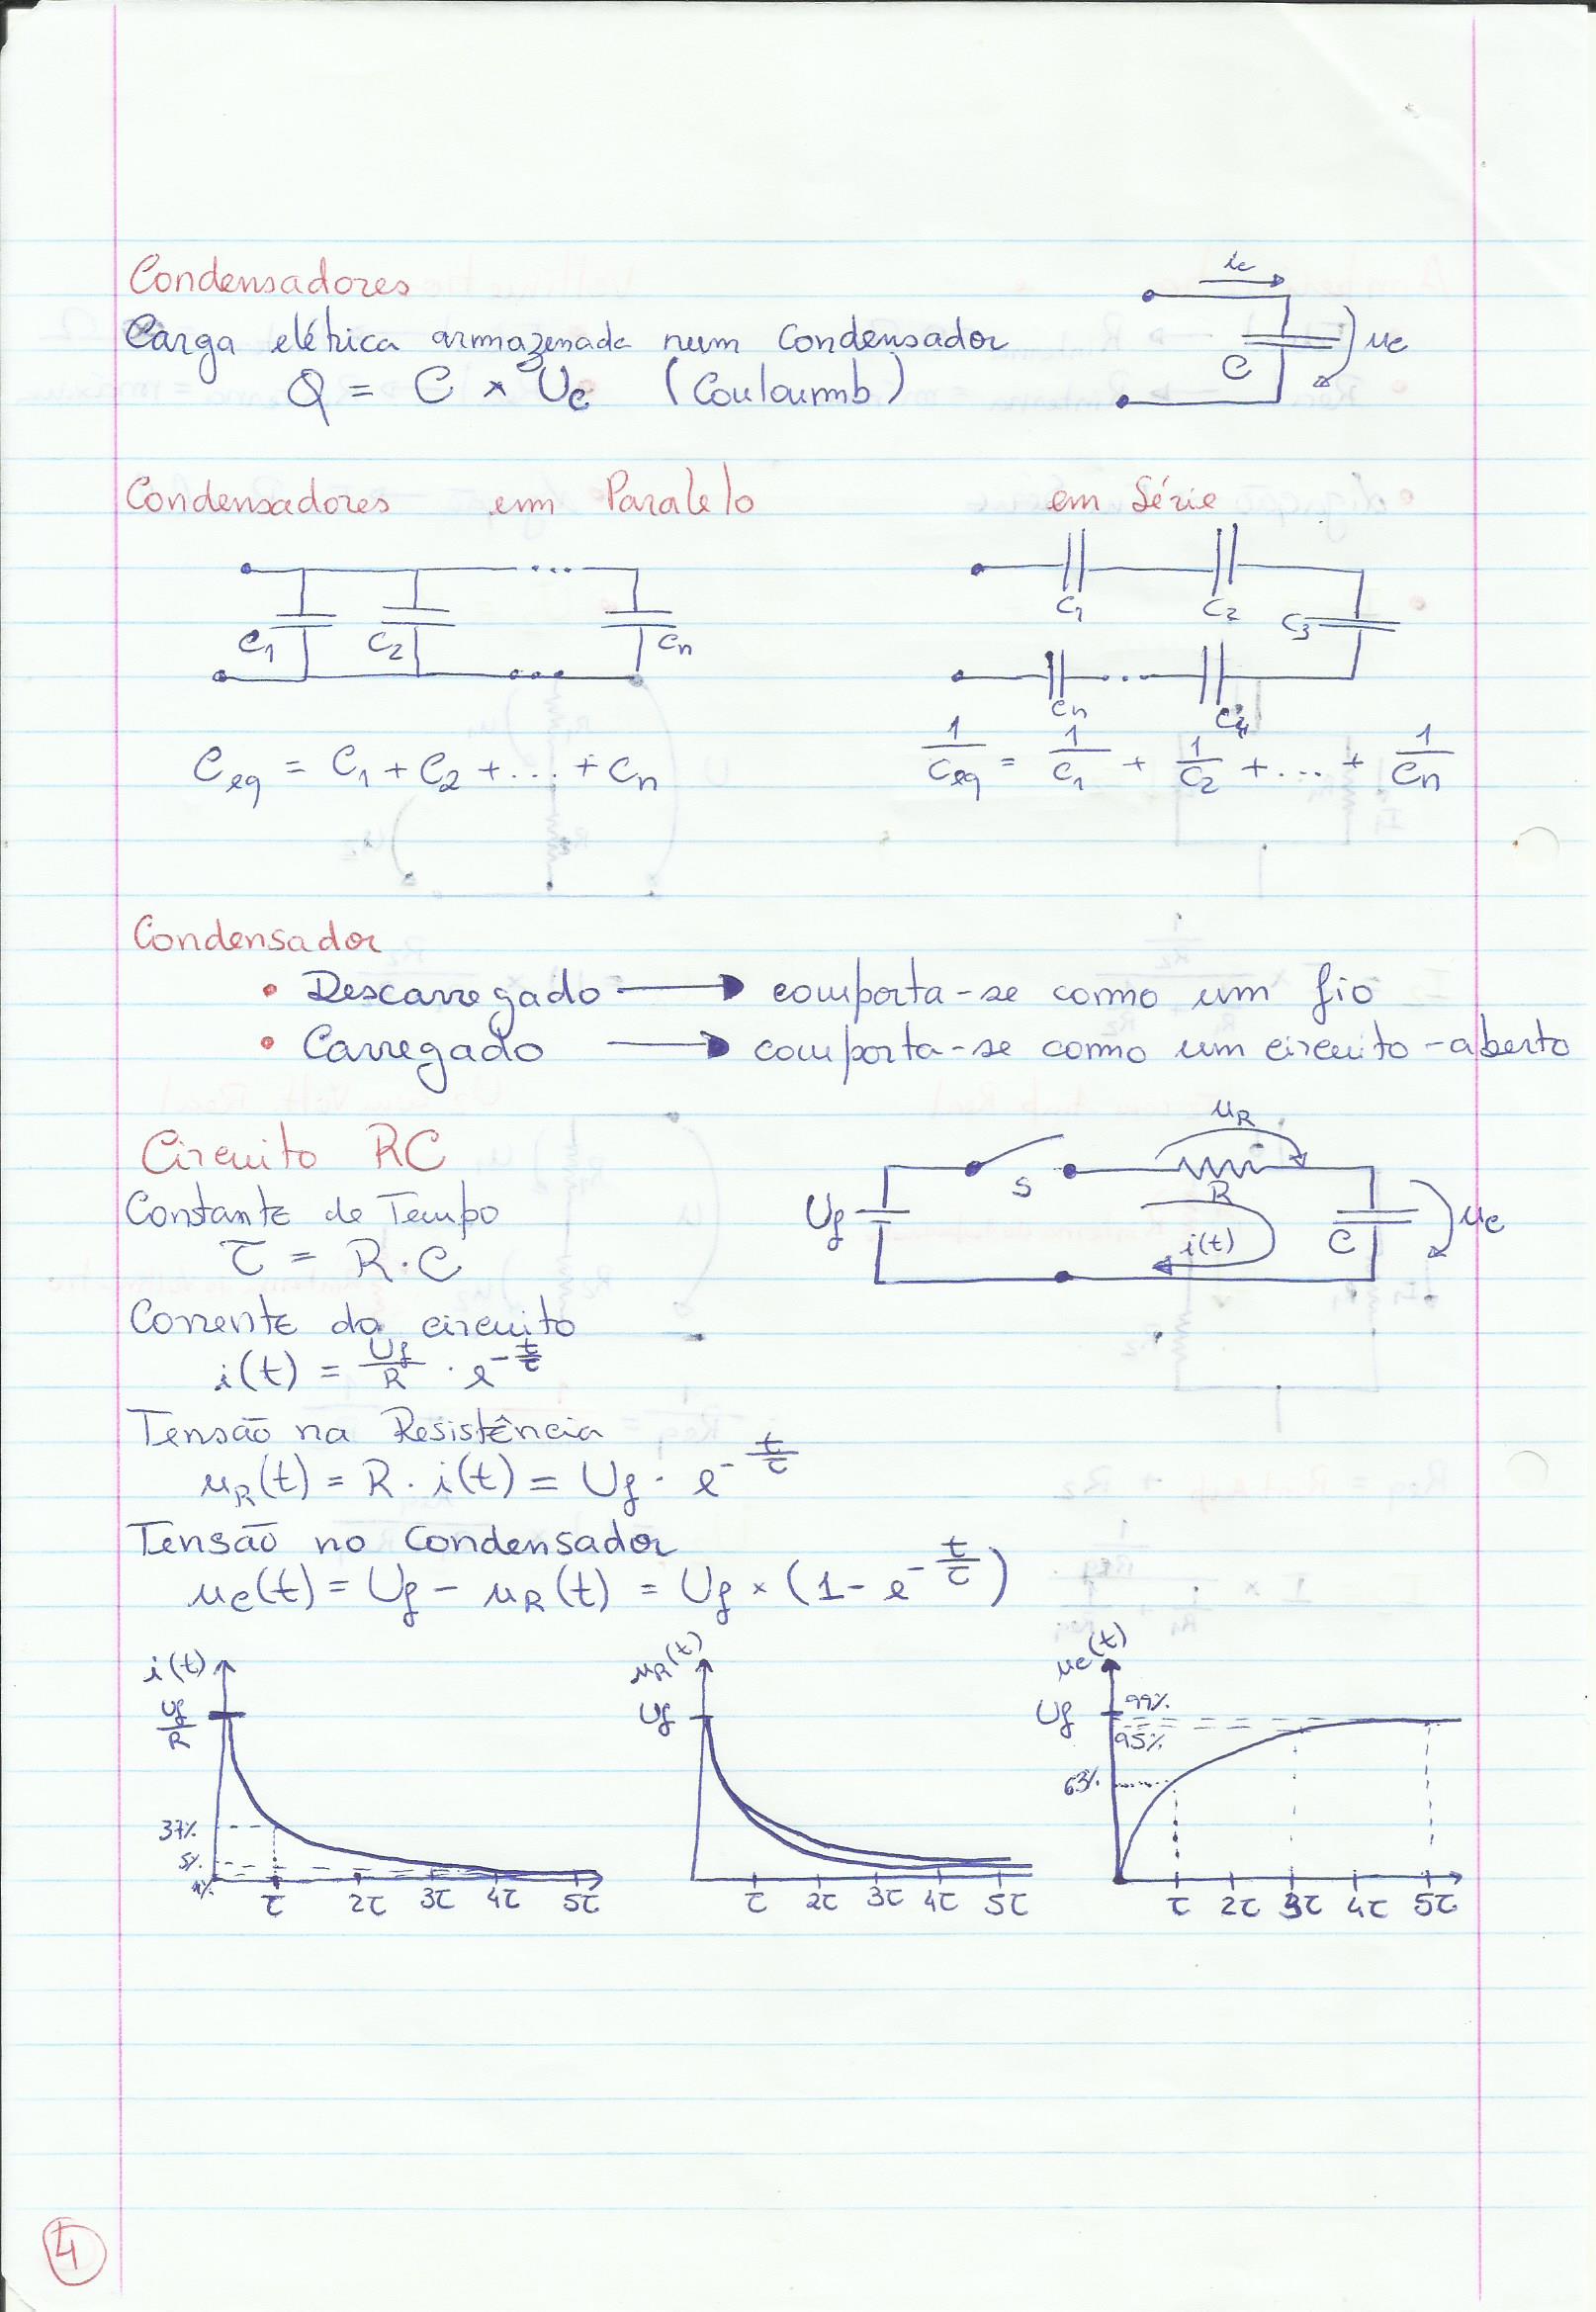 Condensadores
Carga elétrica armazenada num Condensador
Q = C × Uc (Couloumb)
ic
C
uc
Condensadores em Paralelo
em Série
C1 C2 Cn
C1 C2 C3
Cn C4
Ceq = C1 + C2 + ... + Cn
1/Ceq = 1/C1 + 1/C2 + ... + 1/Cn
Condensador
• Descarregado → comporta-se como um fio
• Carregado → comporta-se como um circuito-aberto
Circuito RC
Constante de Tempo
τ = R.C
uR
S
R
Uf
i(t)
C
uc
Corrente do circuito
i(t) = Uf/R . e^-t/τ
Tensão na Resistência
uR(t) = R. i(t) = Uf . e^-t/τ
Tensão no Condensador
uc(t) = Uf - uR(t) = Uf × (1 - e^-t/τ)
i(t)
Uf/R
37%
5%
τ 2τ 3τ 4τ 5τ
uR(t)
Uf
τ 2τ 3τ 4τ 5τ
uc(t)
99%
Uf
95%
63%
τ 2τ 3τ 4τ 5τ
4